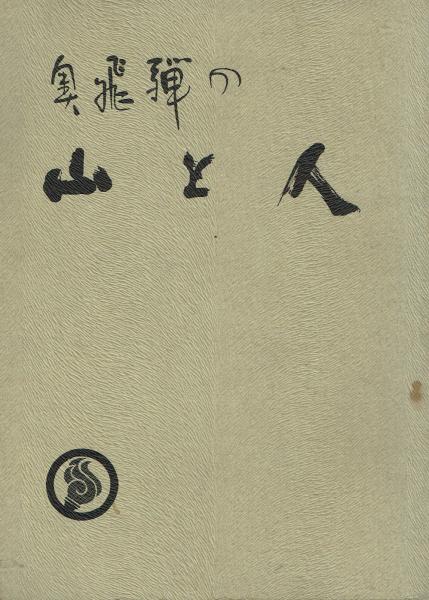 奥飛騨の
山と人